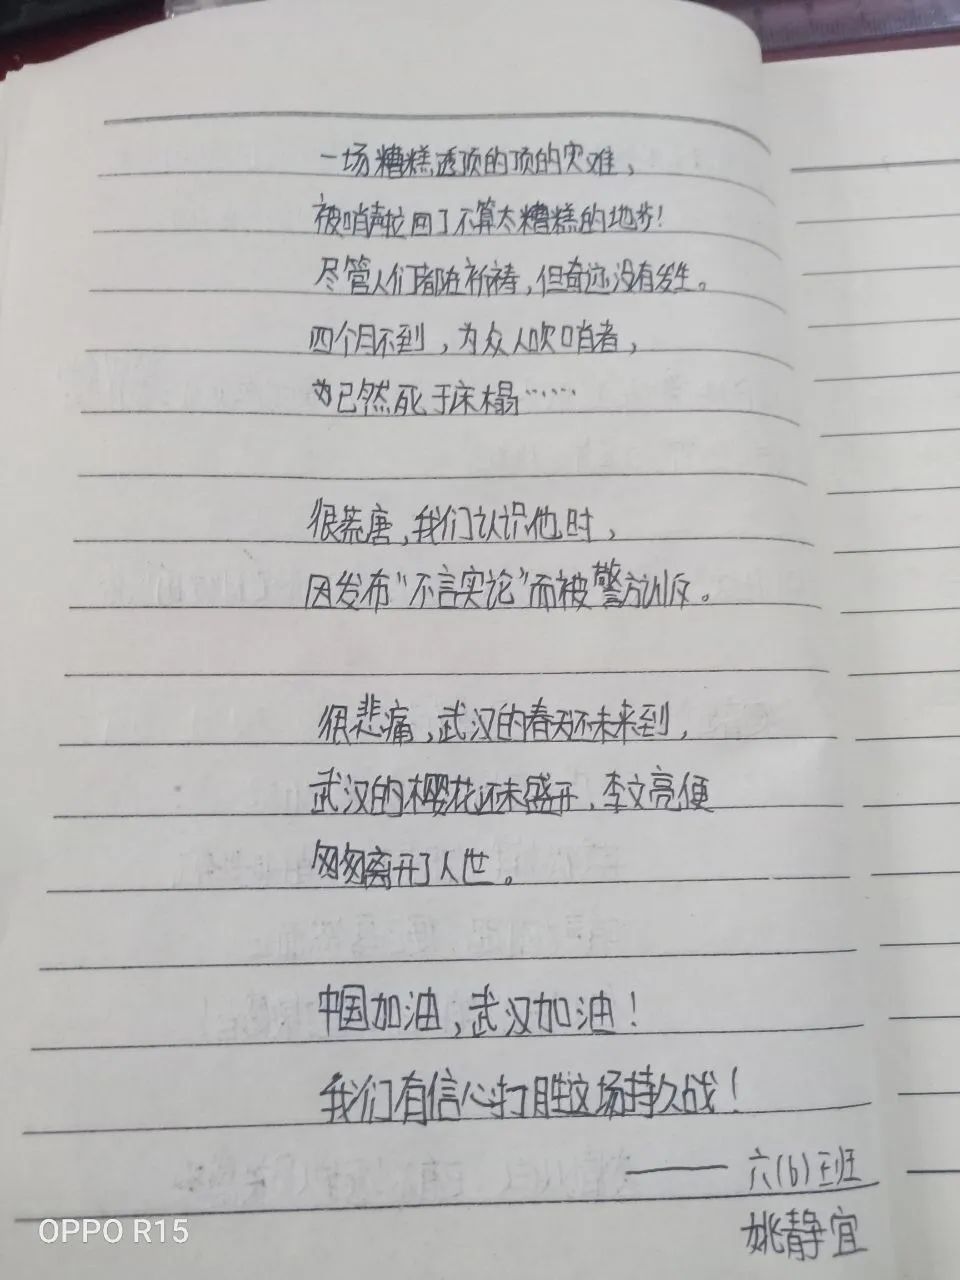 一场糟糕透顶的顶的灾难，
被哨声拉回了不算太糟糕的地步！
尽管人们都在祈祷，但奇迹没有发生。
四个月不到，为众人吹哨者，
已然死于床榻……
很荒唐，我们认识他时，
因发布“不言实论”而被警方训。
很悲痛，武汉的春天还未来到，
武汉的樱花还未盛开，李文亮便
匆匆离开了人世。
中国加油，武汉加油！
我们有信心打胜这场持久战！
——六(6)班
姚静宜
OPPO R15